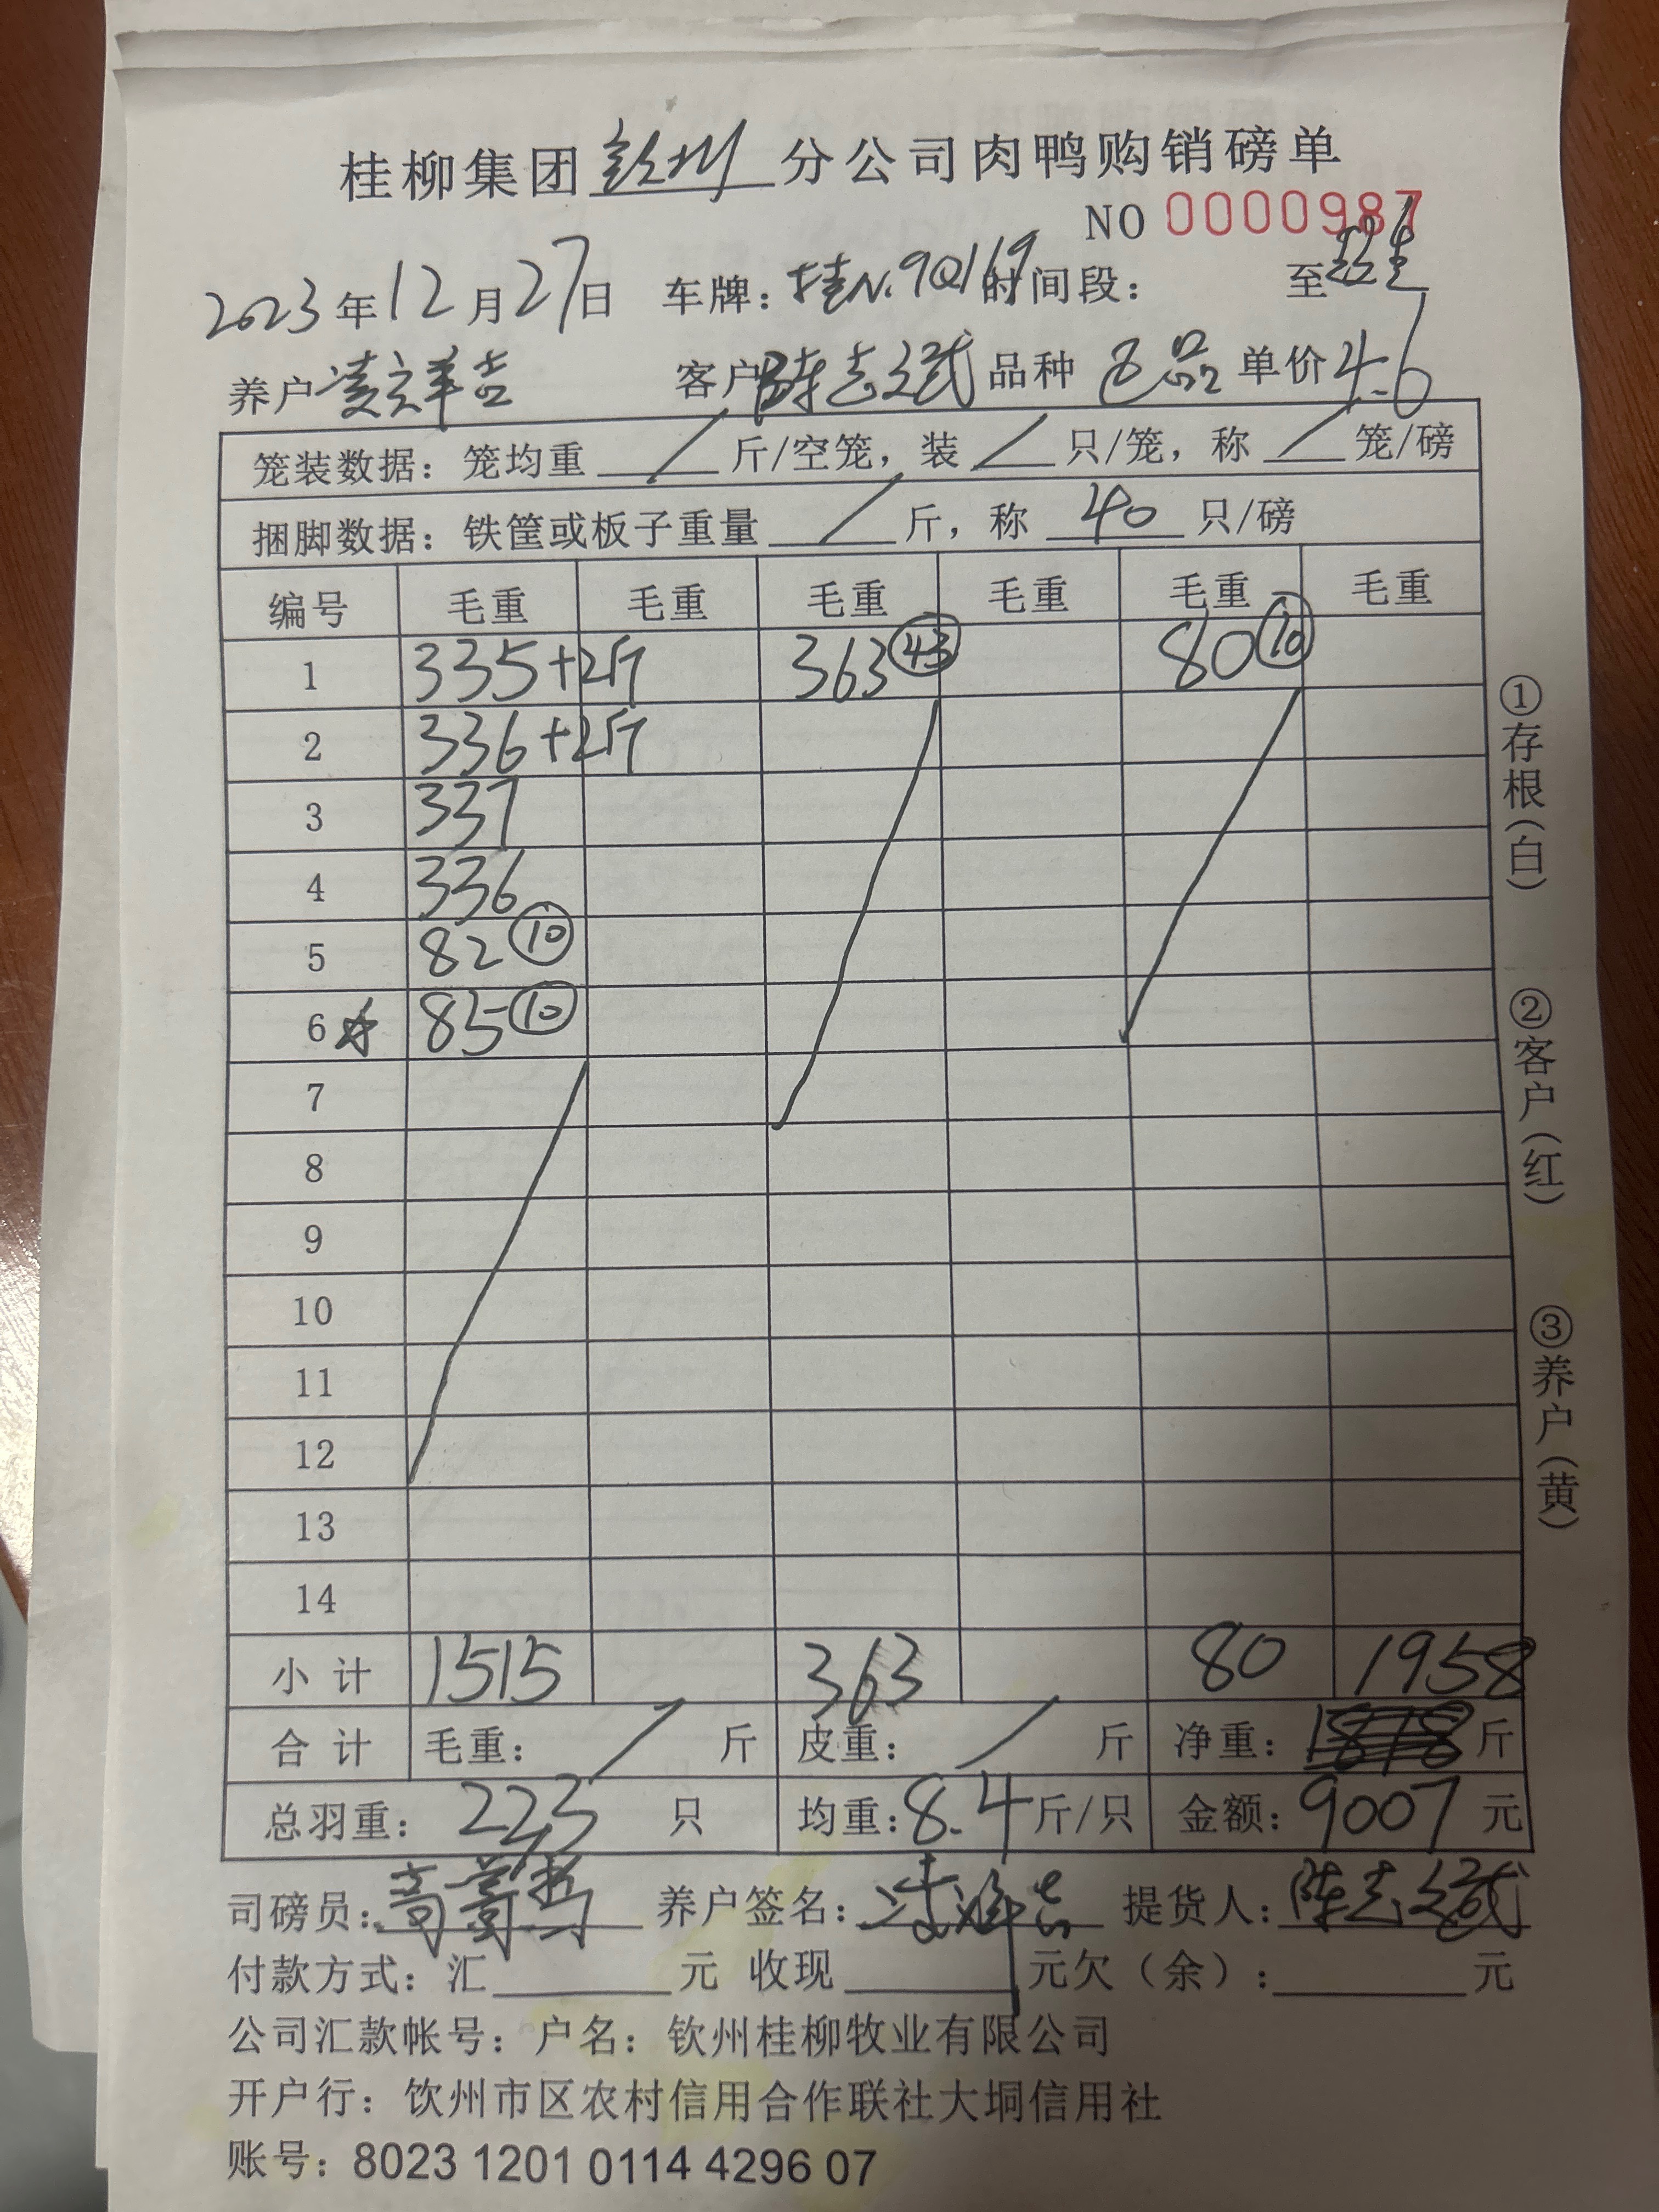 桂柳集团钦州分公司肉鸭购销磅单
NO 0000987
2023年12月27日 车牌：桂N.9Q169 时间段： 至
养户 凌立祥吉 客户 陈志斌 品种 正品 单价 4.6
笼装数据：笼均重 / 斤/空笼，装 / 只/笼，称 / 笼/磅
捆脚数据：铁筐或板子重量 / 斤，称 40 只/磅
编号 毛重 毛重 毛重 毛重 毛重 毛重
1 335+2斤 363 43 80 10
2 336+2斤
3 337
4 336
5 82 10
6 85 10
7
8
9
10
11
12
13
14
小计 1515 363 80 1958
合计 毛重： / 斤 皮重： / 斤 净重：1878 斤
总羽重： 223 只 均重：8.4 斤/只 金额：9007 元
司磅员： 养户签名： 提货人：陈志斌
付款方式：汇 元 收现 元欠（余）： 元
公司汇款帐号：户名：钦州桂柳牧业有限公司
开户行：钦州市区农村信用合作联社大垌信用社
账号：8023 1201 0114 4296 07
①存根（白）
②客户（红）
③养户（黄）